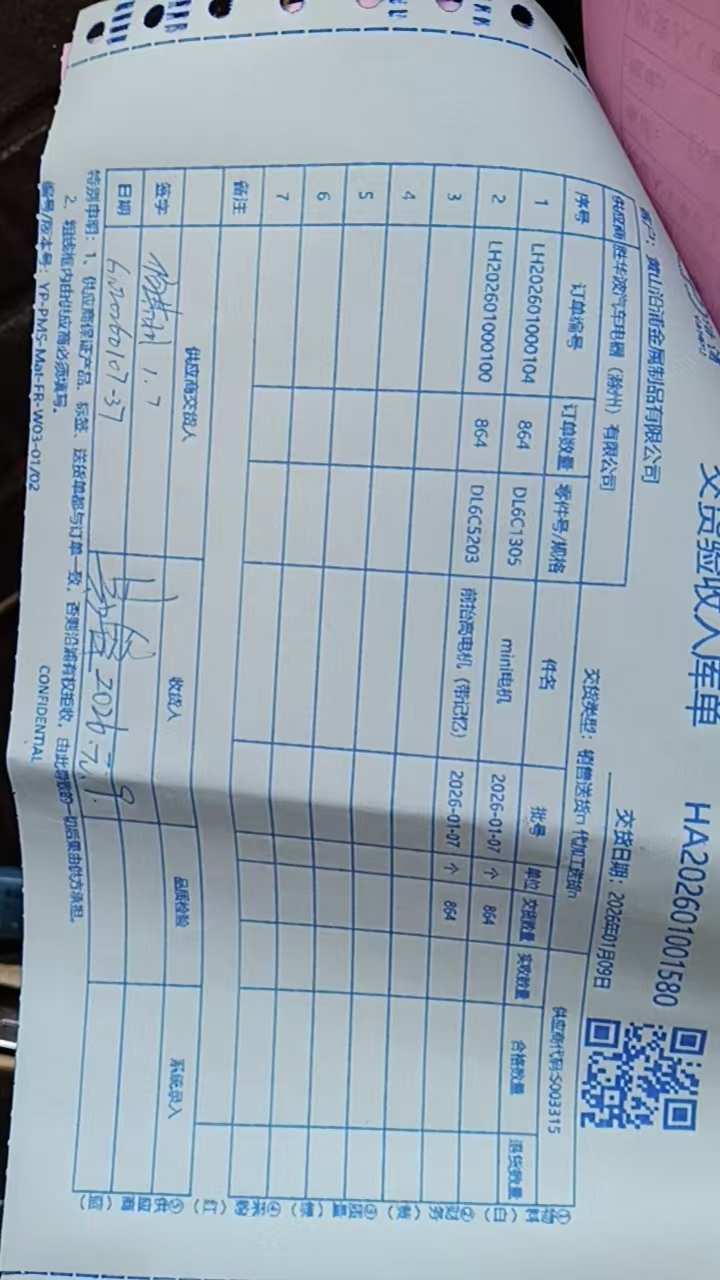 交货验收入库单 HA202601001580
客户：黄山沿浦金属制品有限公司 交货日期：2026年01月09日
供应商 胜华波汽车电器（滁州）有限公司 交货类型：销售送货n 代加工送货n 供应商代码:S003315
序号 订单编号 订单数量 零件号/规格 件名 批号 单位 交货数量 实收数量 合格数量 退货数量
1 LH202601000104 864 DL6C1305 mini电机 2026-01-07 个 864
2 LH202601000100 864 DL6C5203 前抬高电机（带记忆） 2026-01-07 个 864
3
4
5
6
7
备注
供应商交货人 收货人 品质检验 系统录入
签字 1.7
日期 2026.
特别申明：1、供应商保证产品、标签、送货单都与订单一致，否则沿浦有权拒收，由此导致的一切后果由供方承担。
2、粗线框内由供应商必须填写。
编号/版本号：YP-PMS-Mal-FR-W03-01/02 CONFIDENTIAL
①物料（白）
②财务（黄）
③质量（橙）
④采购（红）
⑤供应商（蓝）